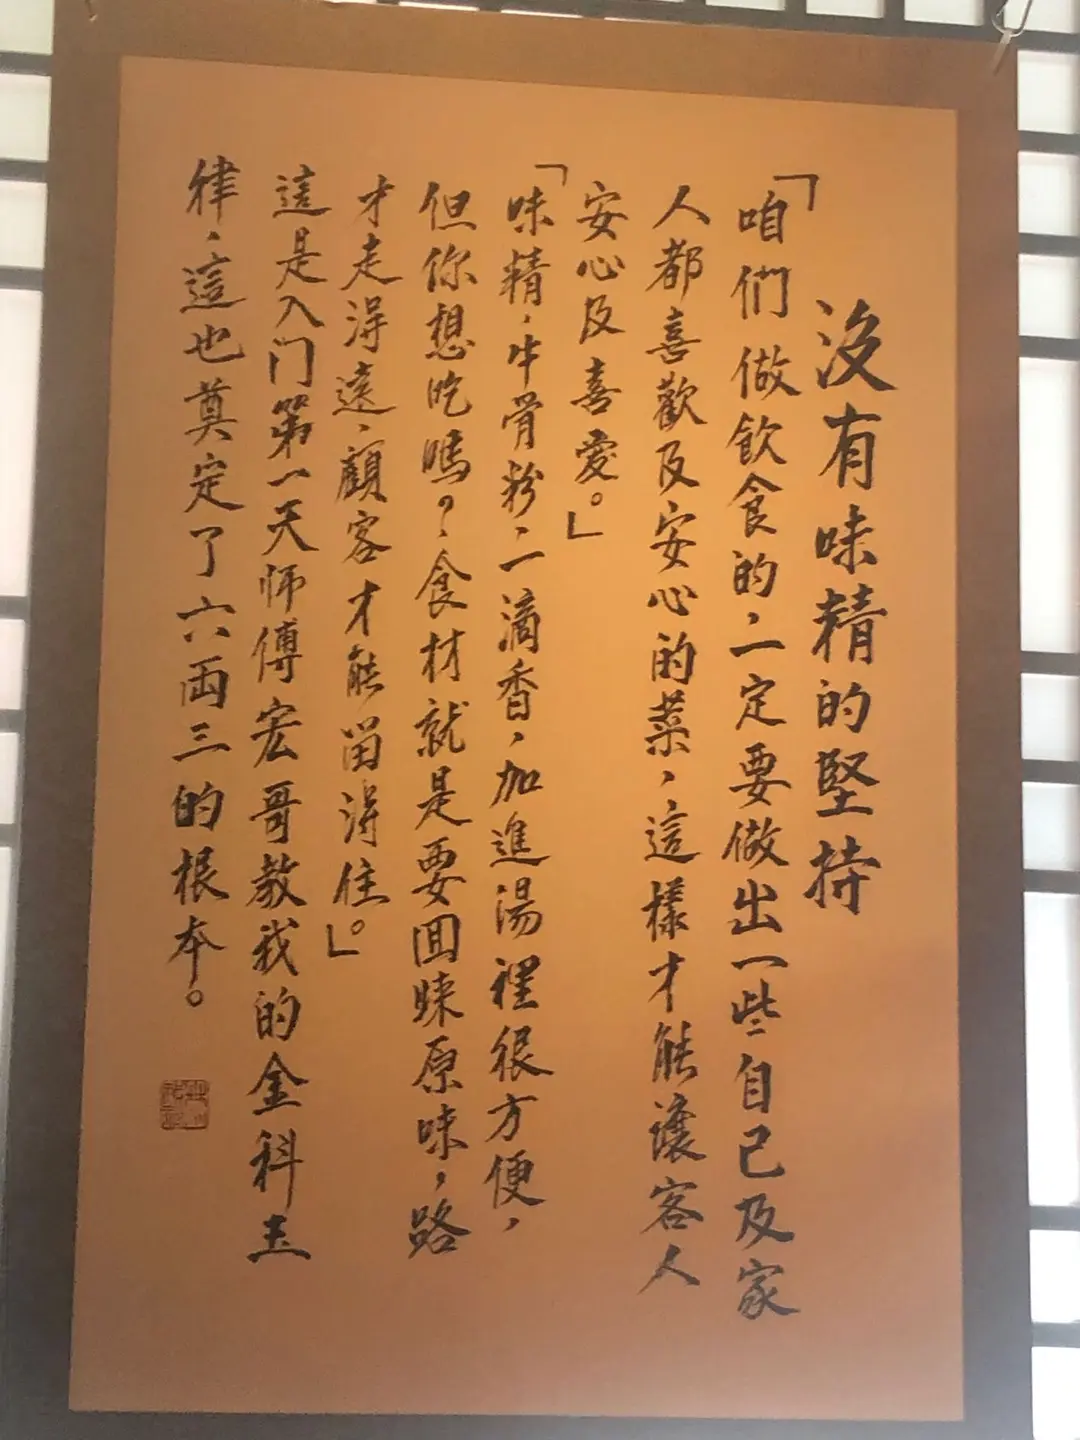 沒有味精的堅持
「咱們做飲食的，一定要做出一些自己及家
人都喜歡及安心的菜，這樣才能讓客人
安心及喜愛。」
「味精、牛骨粉、一滴香，加進湯裡很方便，
但你想吃嗎？、食材就是要回味原味，路
才走得遠，顧客才能留得住。」
這是入门第一天師傅宏哥教我的金科玉
律、這也奠定了六両三的根本。